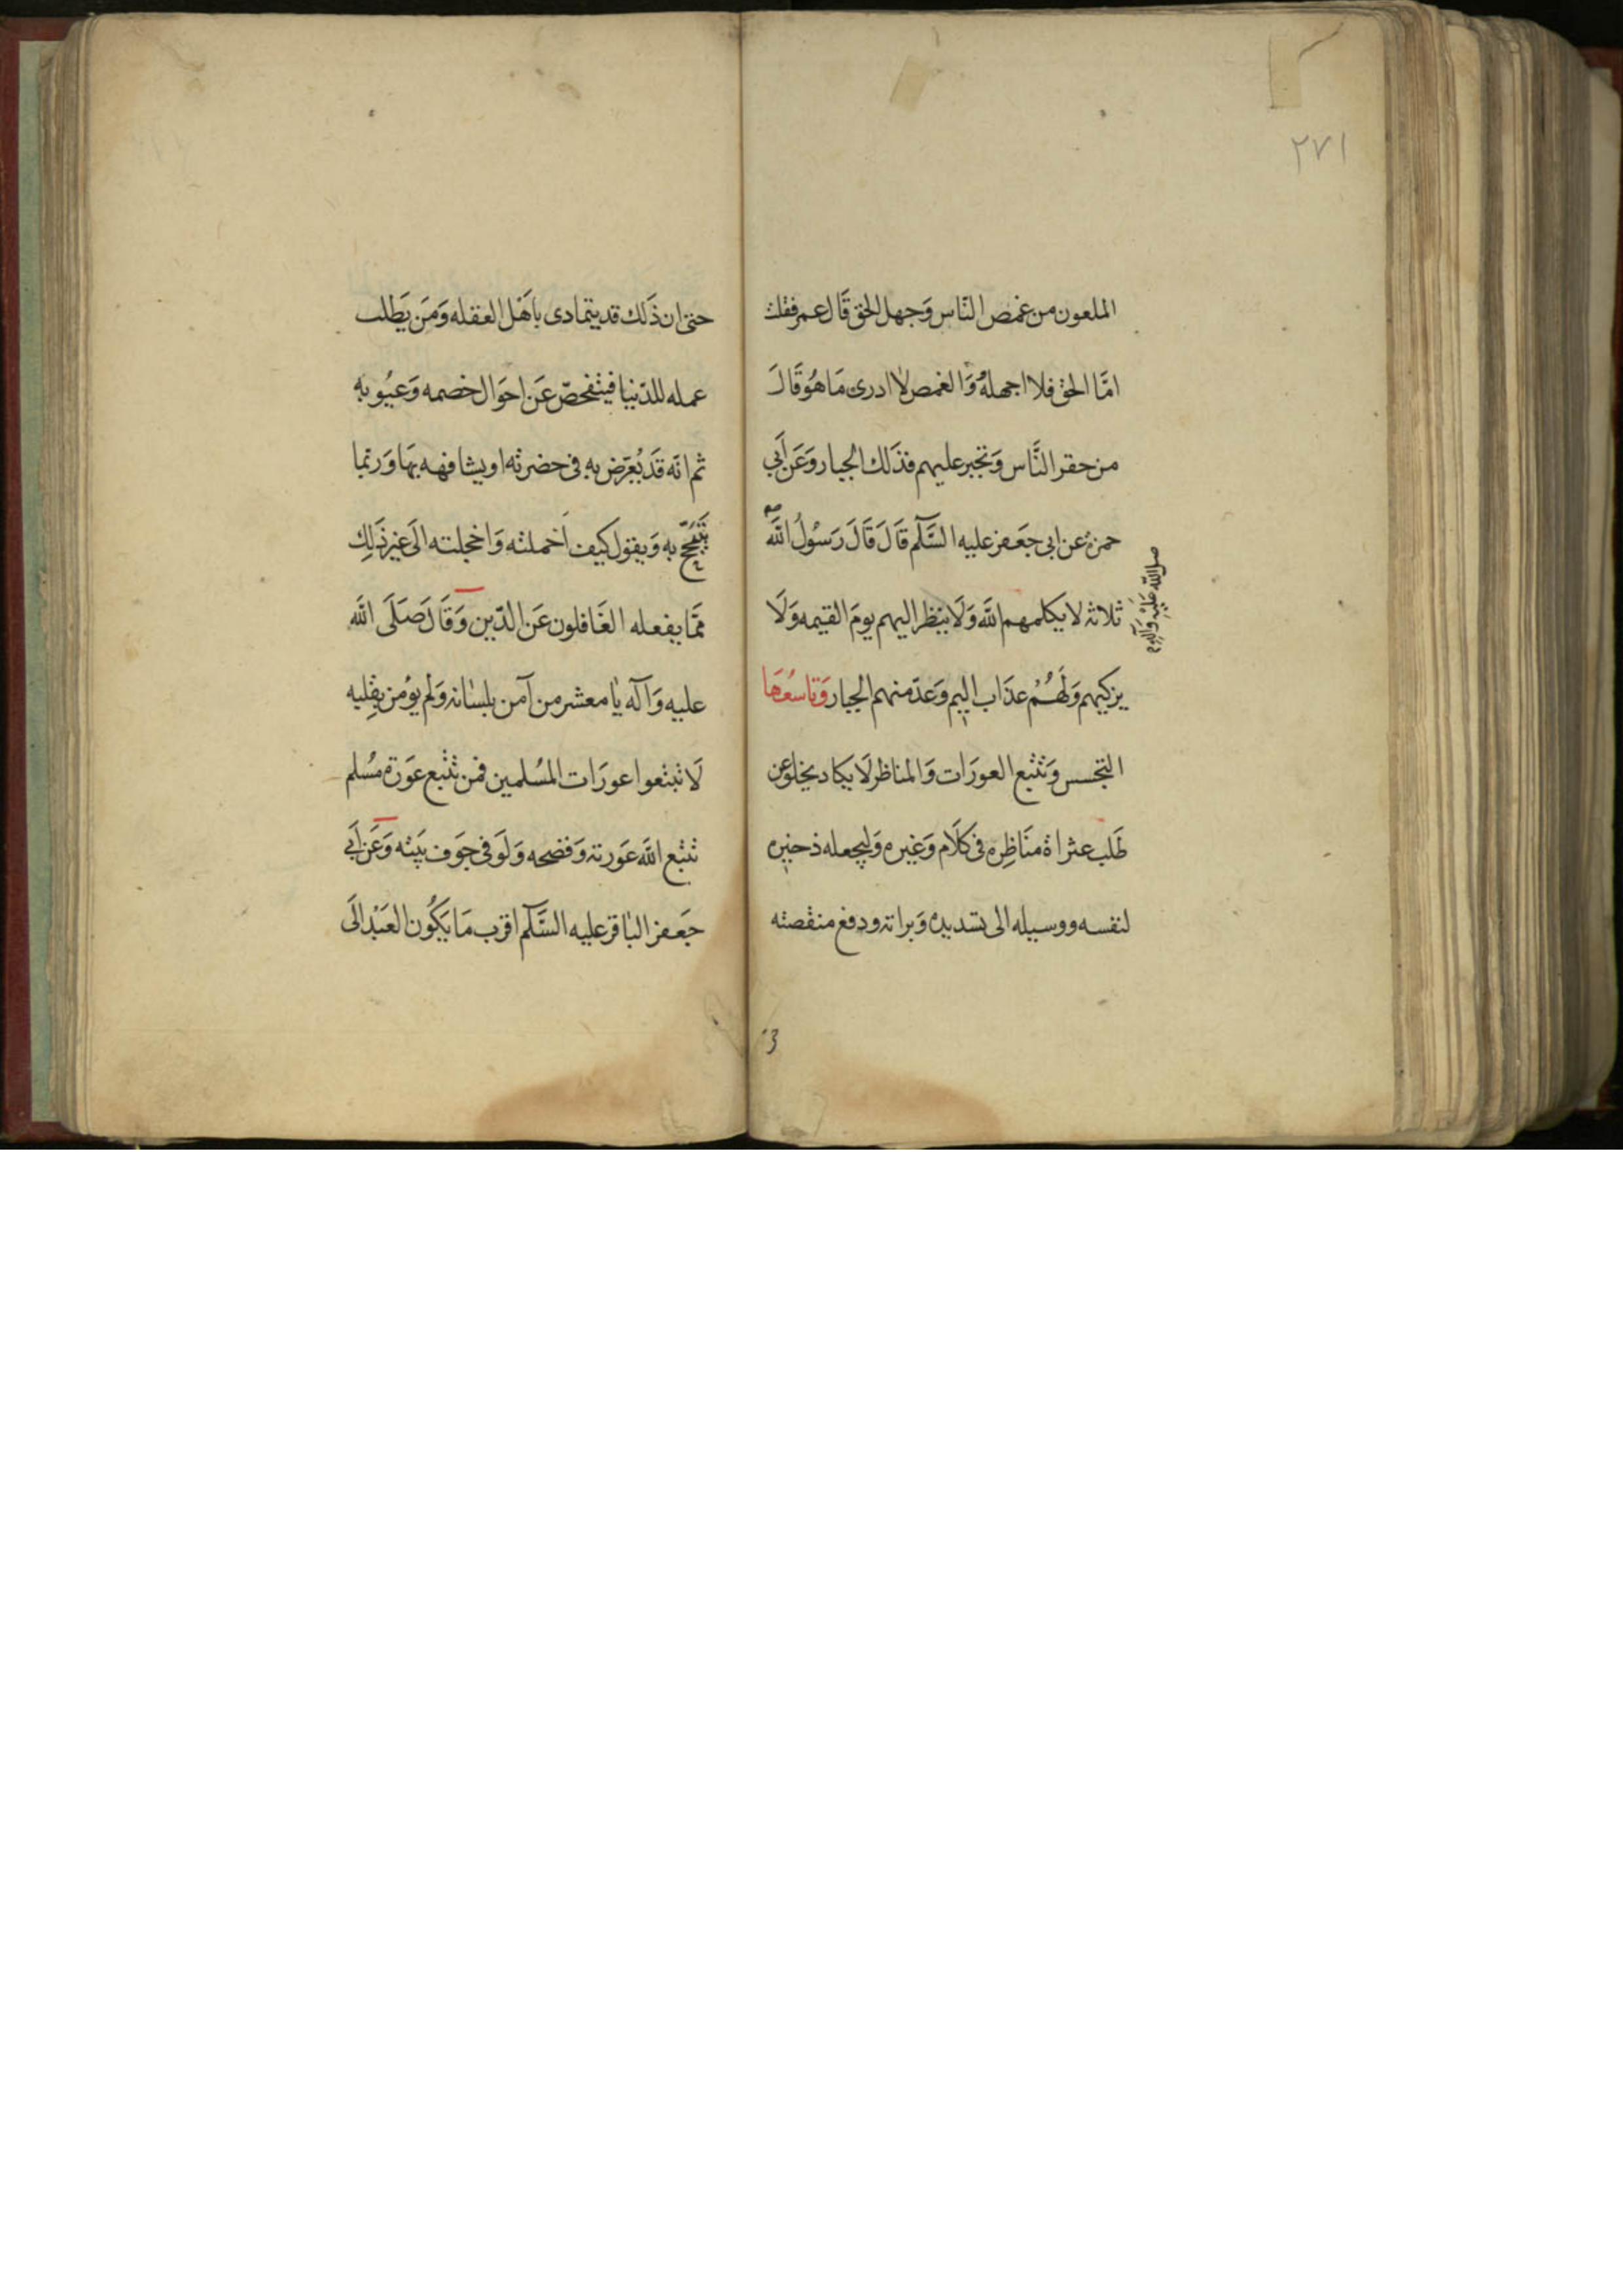 ٢٧١
الملعون من غمص النّاس وَجهل الحق قَال عمر فقلت
امَّا الحق فلا اجهلهُ وَالغمص لا ادرى مَا هُوَ قَالَ
من حقر النَّاس وَتجبر عليهم فذَلك الجبار وَعَن اَبي
حمزهُ عن ابى جَعَفر عليه السَّلٓم قَالَ قَالَ رَسُولُ اللهَّ
صلى الله عَلَيْهِ وَآلِهِ
ثلاثه لا يَكلمهم اللهَّ وَلَا يَنظر اليهم يومَ القيمه وَلَا
يزكيهم وَلَهُمُ عذَاب اليم وَعدّ منهم الجبار وَتاسعُهَا
التجسس وَتتبع العورَات وَالمناظر لَا يكاد يخلو عن
طَلب عثراة منَاظِره فى كلَام وَغيره وَليجعله ذخيره
لنفسه ووسيله الى تسديده وَبراته ودفع منقصته
حتىّ ان ذَلك قد يتمَادى باَهْل العقله وَمَن يَطلب
عمله للدّنيا فيتفحصّ عَن احوَال خصمه وَعيُوبه
ثم انّه قَد يُعَرّض به فى حضرته او يشافهه بهَا وَربّما
يَتَبَجّح به وَيقول كيف اَخملته وَاخجلته الَى غير ذَلِك
ممّا يفعله الغَافلون عَن الدّين وَقَالَ صَلَى اللهَّ
عليه وَآله يَا معشر من آمن بلسَانه وَلم يوُمن بقِلبه
لَا تتبعوا عورَات المُسلمين فمن تتبع عَورَة مسُلم
تتبع اللهَّ عَورته وَفضحه وَلَو فى جوَف بَيته وَعَن اَبي
جَعَفر البَاقر عليه السَّلٓم اقرب مَا يَكُون العَبْد الَى